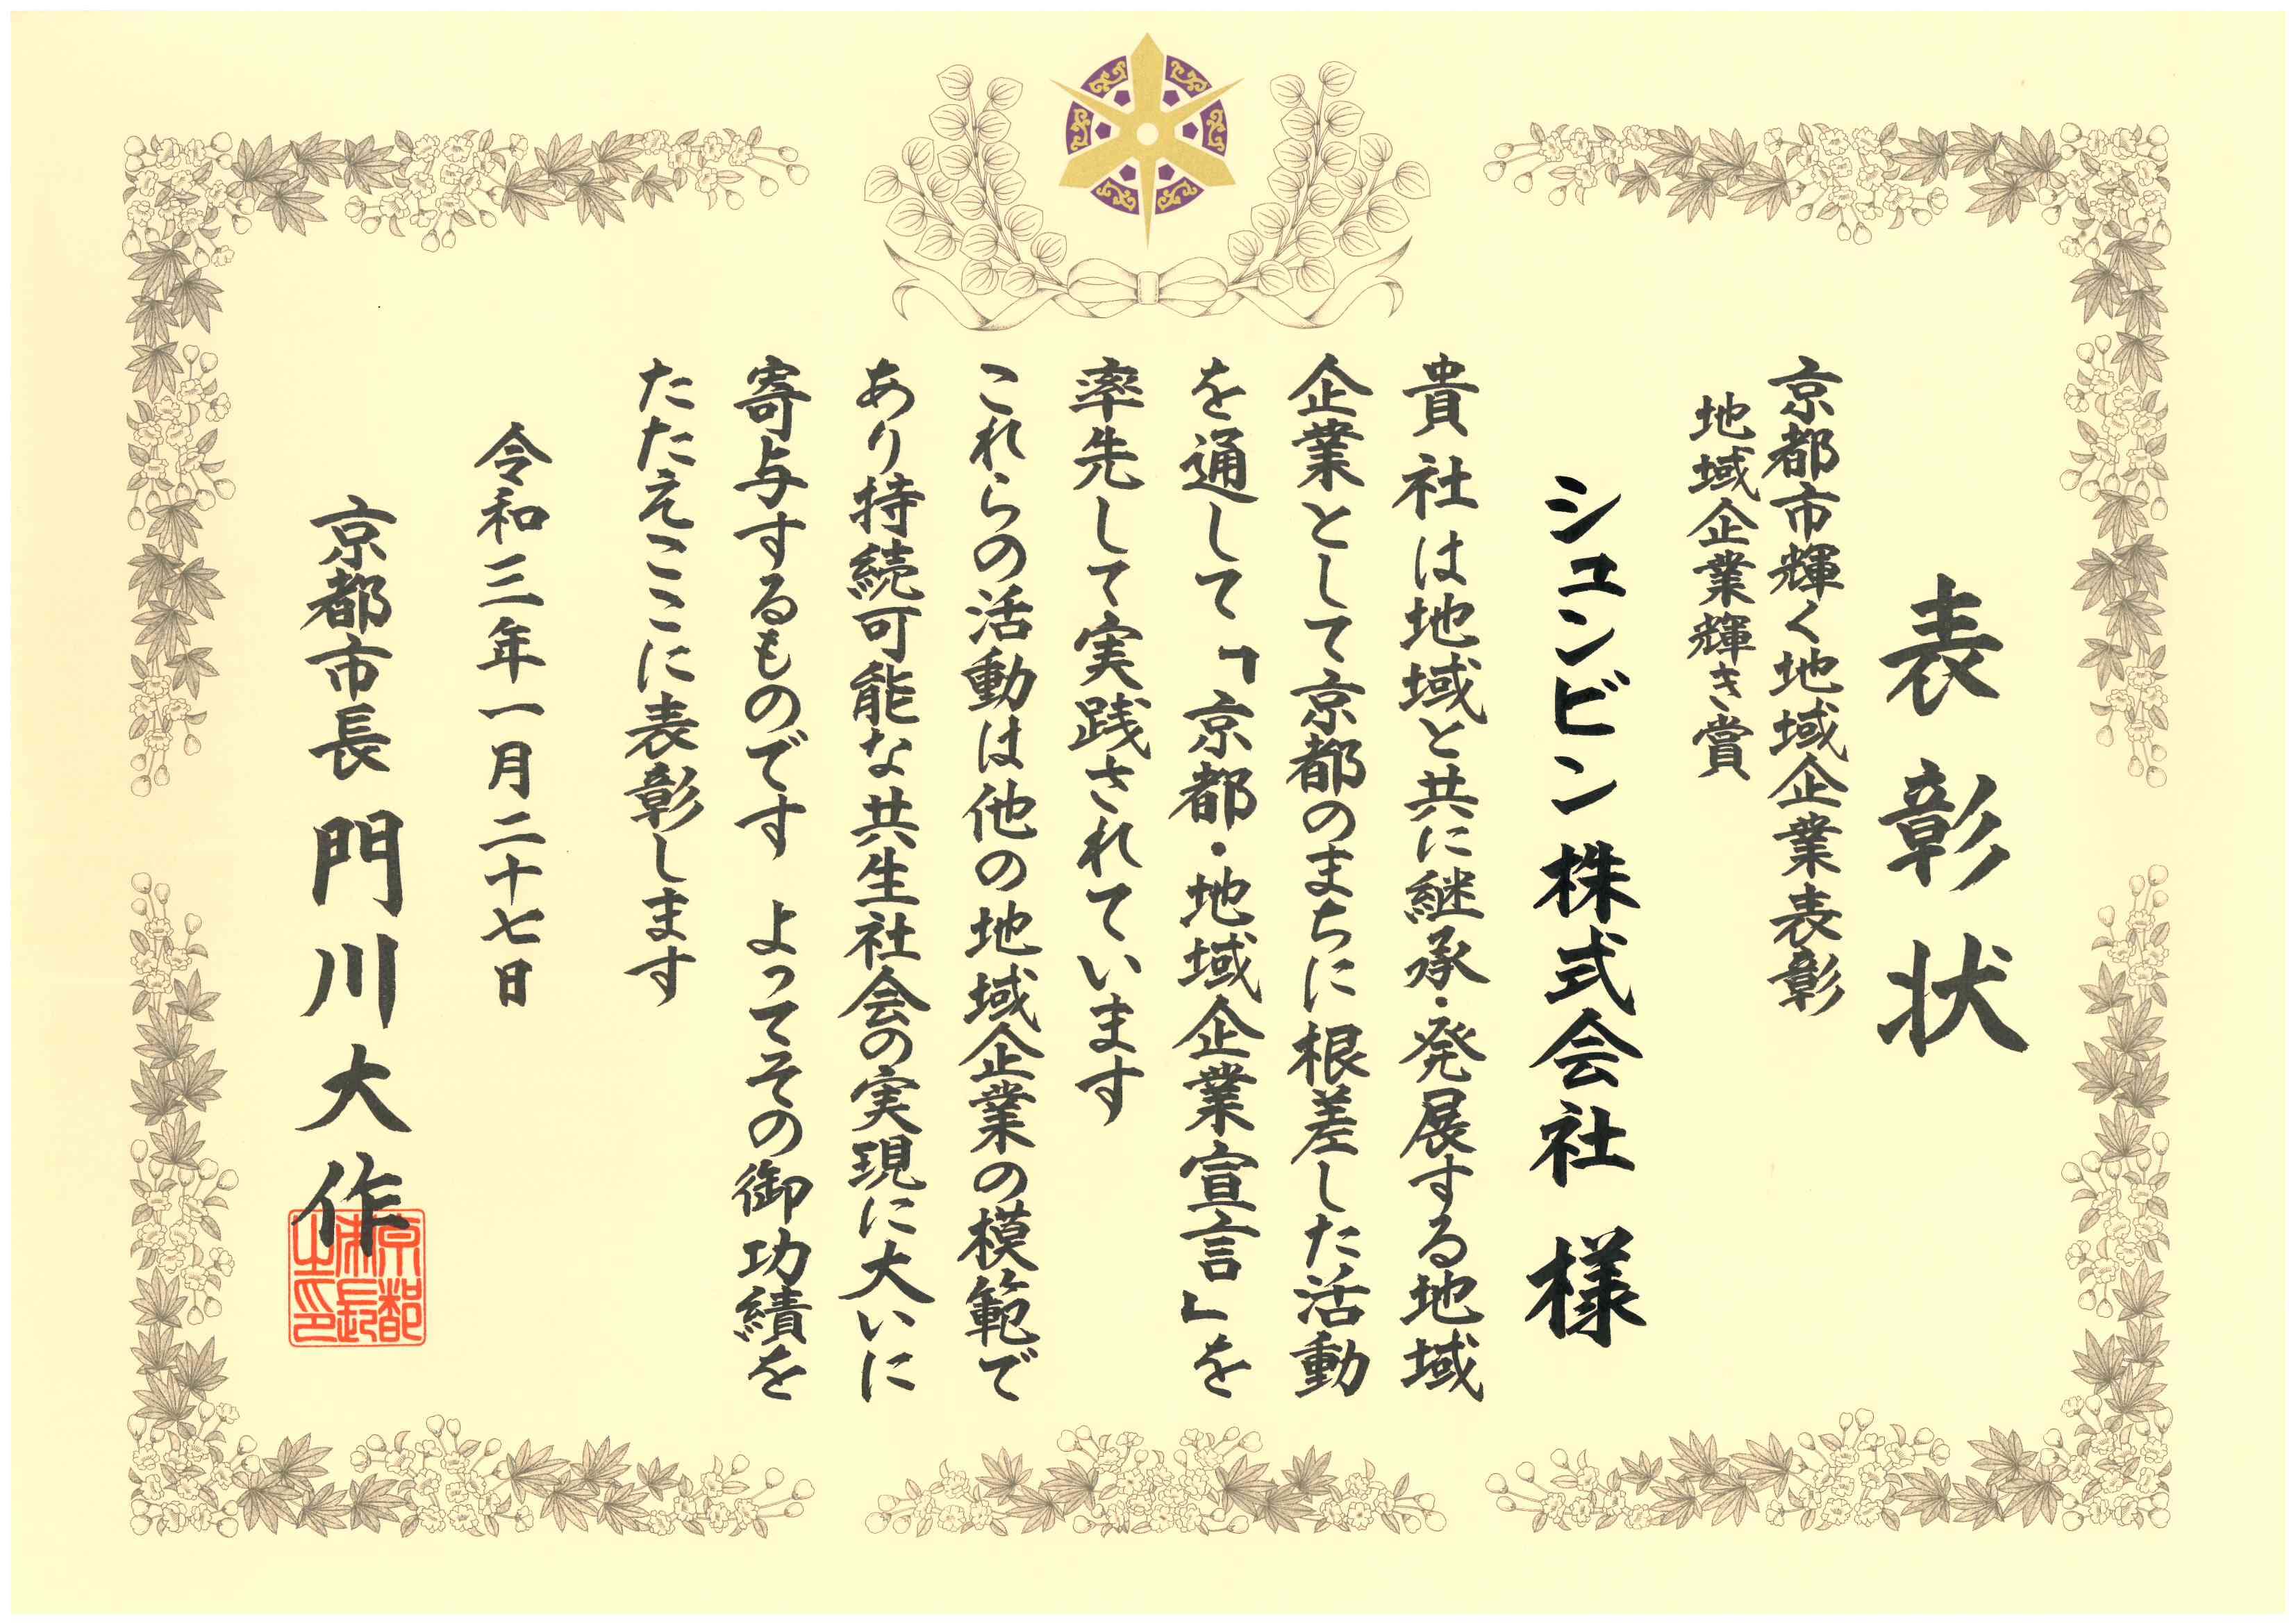 表彰状
京都市輝く地域企業表彰
地域企業輝き賞
シュンビン株式会社 様
貴社は地域と共に継承・発展する地域
企業として京都のまちに根差した活動
を通して「京都・地域企業宣言」を
率先して実践されています
これらの活動は他の地域企業の模範で
あり持続可能な共生社会の実現に大いに
寄与するものです よってその御功績を
たたえここに表彰します
令和三年一月二十七日
京都市長 門川大作
京都市長之印